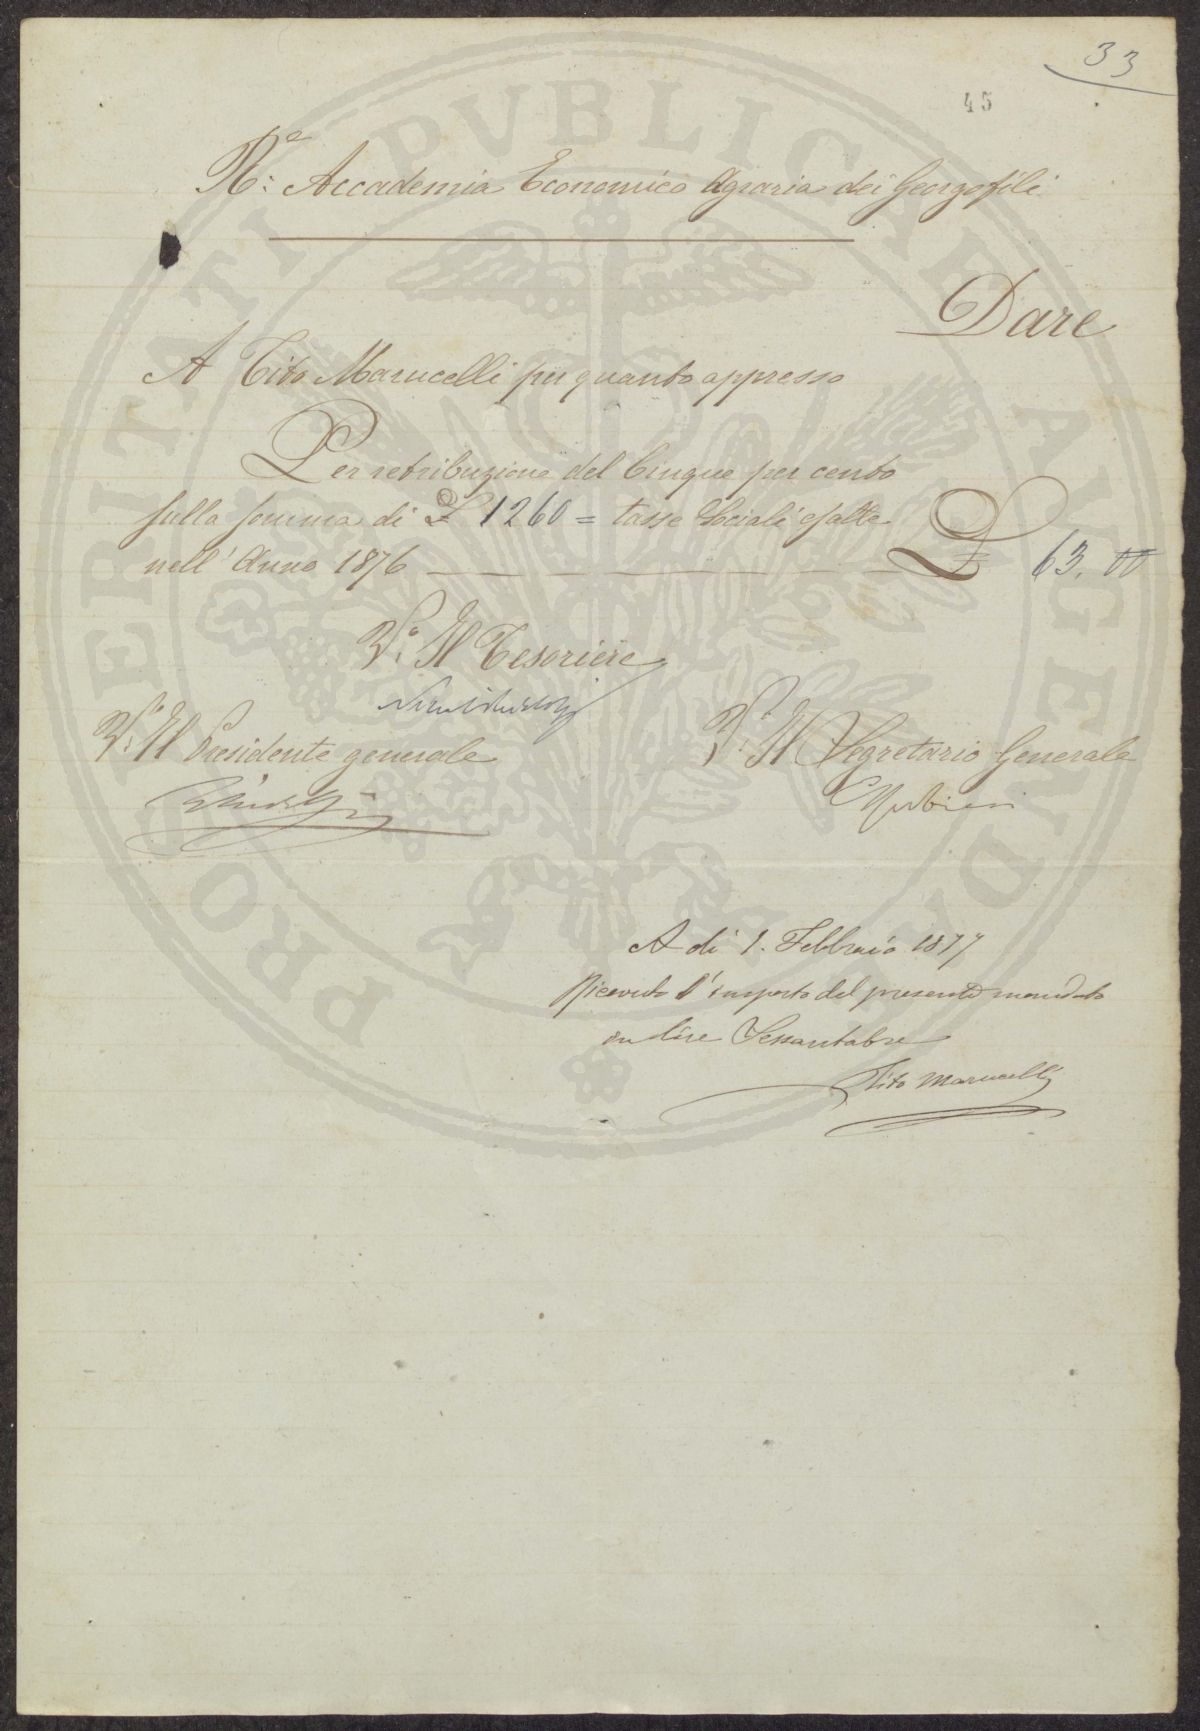 33
45
R.a Accademia Economico Agraria dei Georgofili
Dare
A Tito Marucelli per quanto appresso
Per retribuzione del Cinque per cento
sulla somma di £ 1260 = tasse Sociali esatte
nell' Anno 1876 £ 63. 00
V.o Il Tesoriere
V.o Il Presidente generale
V.o Il Segretario Generale
Rubieri
A dì 1. Febbraio 1877
Ricevuto l'importo del presente mandato
in lire Sessantatre
Tito Marucelli
PROSPERITATI PVBLICAE AVGENDAE